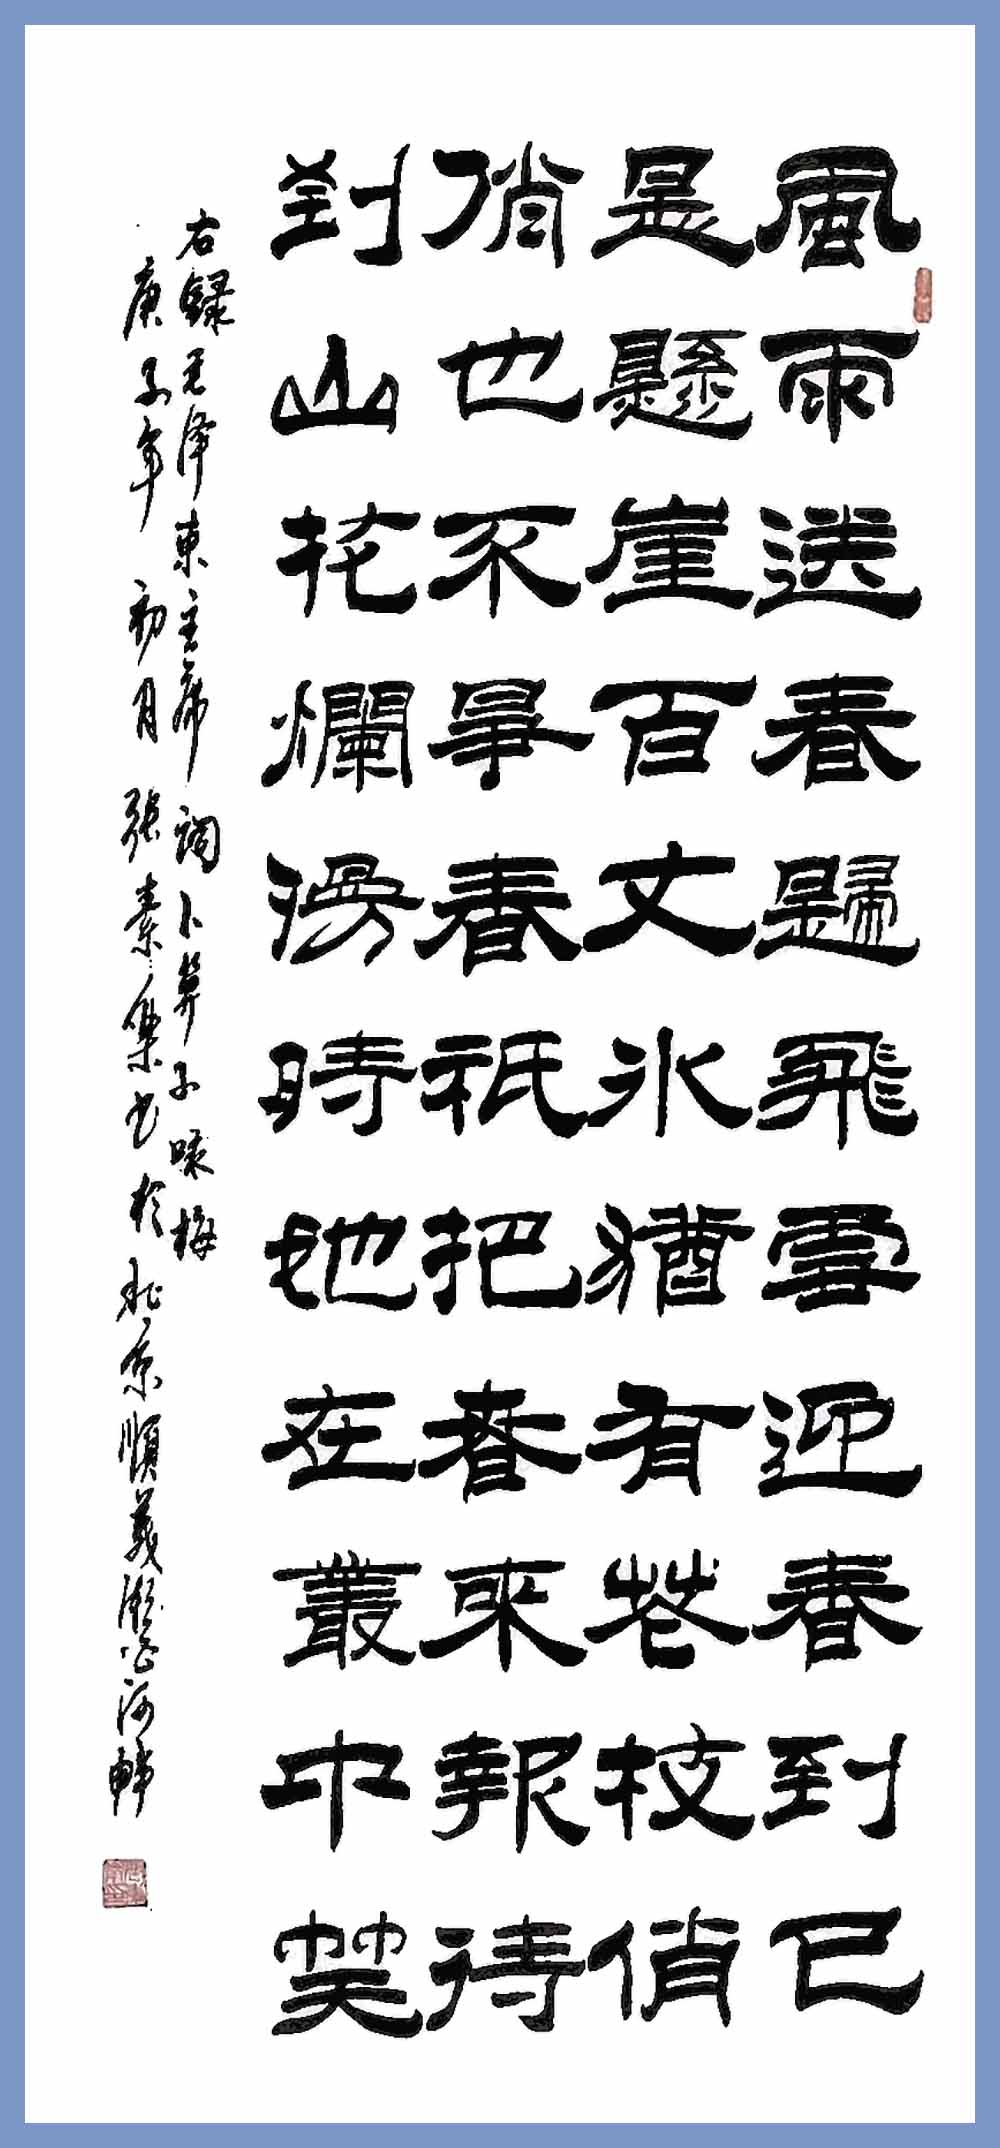 風雨送春歸飛雪迎春到已
是懸崖百丈冰猶有花枝俏
俏也不爭春祇把春來報待
到山花爛漫時她在叢中笑
右録毛泽東主席詞卜算子咏梅
庚子年初月张素集书於北京順義潮白河畔